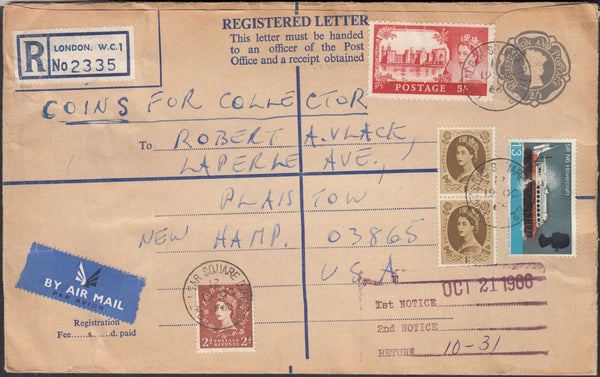 REGISTERED LETTER
This letter must be handed
to an officer of the Post
Office and a receipt obtained
R
LONDON, W.C.1
No 2335
POSTAGE
REGISTRATION AND POSTAGE
COINS FOR COLLECTOR
To ROBERT A. VLACK,
LAPERLE AVE.,
PLAISTOW
NEW HAMP. 03865
USA
1/3
SRN6 Hovercraft
BY AIR MAIL
PAR AVION
SQUARE
2d 2d
POSTAGE
REVENUE
Registration
Fee......s......d. paid
OCT 21 1966
1st NOTICE
2nd NOTICE
RETURN 10-31